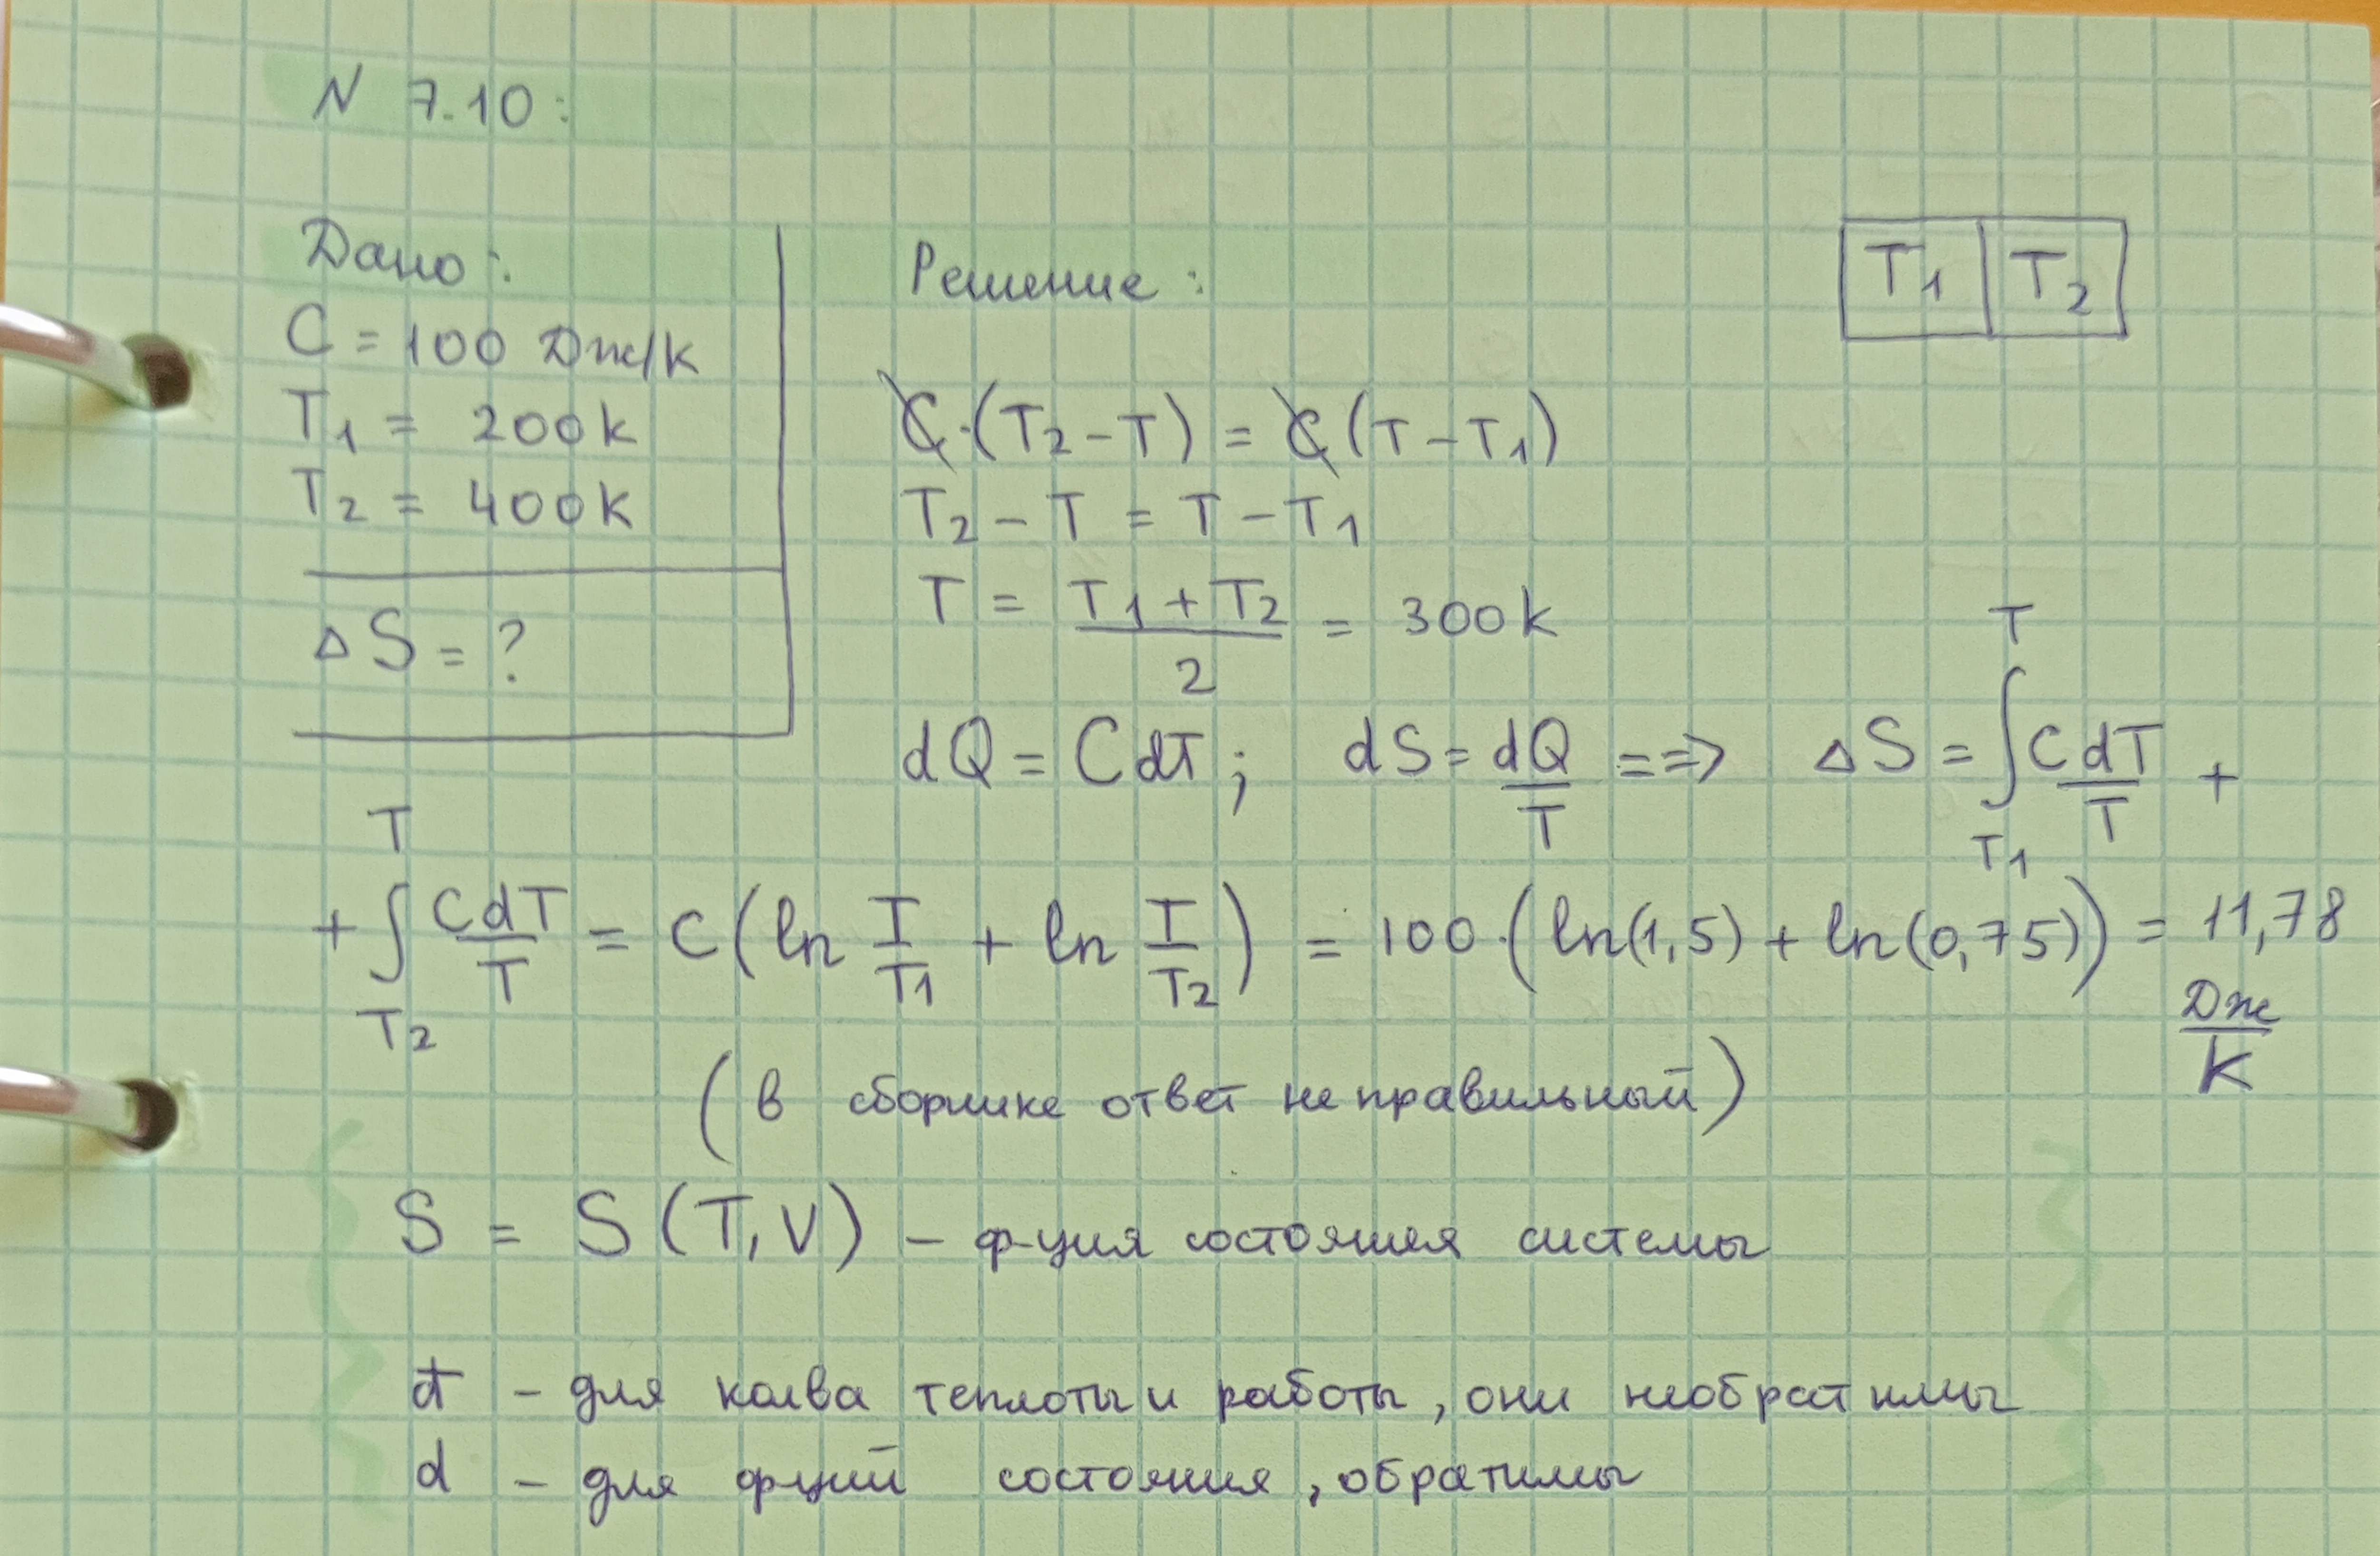 N 7.10:
Дано:
C = 100 Дж/К
T₁ = 200К
T₂ = 400К
ΔS = ?
Решение:
T₁ T₂
C·(T₂ - T) = C(T - T₁)
T₂ - T = T - T₁
T = (T₁ + T₂)/2 = 300К
dQ = CdT; dS = dQ/T ==> ΔS = ∫_{T₁}^{T} CdT/T +
+ ∫_{T₂}^{T} CdT/T = C(ln T/T₁ + ln T/T₂) = 100·(ln(1,5) + ln(0,75)) = 11,78 Дж/К
(в сборнике ответ неправильный)
S = S(T,V) - ф-ция состояния системы
đ - для колва теплоты и работы, они необратимы
d - для фций состояния, обратимы